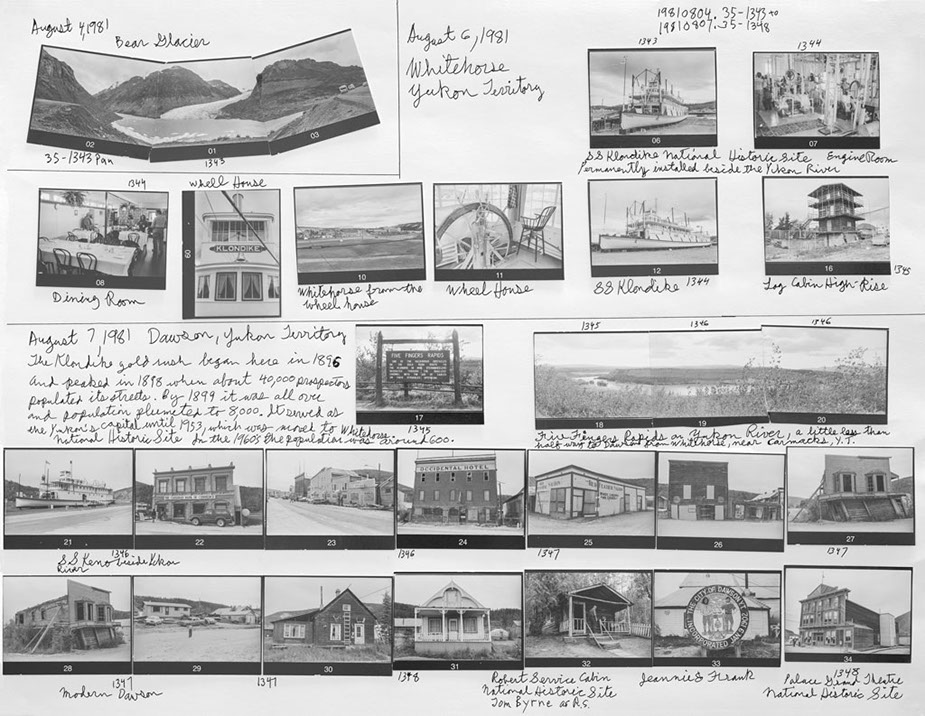 August 4, 1981
Bear Glacier
02
01
03
35-1343 Pan
1343
August 6, 1981
Whitehorse
Yukon Territory
19810804.35-1343 to
19810807.35-1348
1343
06
1344
07
SS Klondike National Historic Site Engine Room
Permanently installed beside the Yukon River
1344
08
Dining Room
Wheel House
KLONDIKE
09
10
Whitehorse from the
wheel house
11
Wheel House
12
SS Klondike 1344
16
1345
Log Cabin High-Rise
August 7, 1981 Dawson, Yukon Territory
The Klondike gold rush began here in 1896
and peaked in 1898 when about 40,000 prospectors
populated its streets. By 1899 it was all over
and population plumeted to 8000. It served as
the Yukon's capital until 1953, which was moved to Whitehorse.
National Historic Site In the 1960s the population was around 600.
FIVE FINGERS RAPIDS
17
1345
1345
1346
1346
18
19
20
Five Fingers Rapids on Yukon River, a little less than
half way to Dawson from Whitehorse, near Carmacks, Y.T.
21
22
23
OCCIDENTAL HOTEL
24
25
26
27
1346
SS Keno beside Yukon
River
1346
1347
1347
28
29
30
31
32
THE CITY OF DAWSON
INCORPORATED
33
34
1347
Modern Dawson
1347
1348
Robert Service Cabin
National Historic Site
Tom Byrne as R.S.
Jeannie & Frank
1348
Palace Grand Theatre
National Historic Site